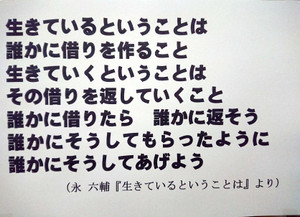 生きているということは
誰かに借りを作ること
生きていくということは
その借りを返していくこと
誰かに借りたら　誰かに返そう
誰かにそうしてもらったように
誰かにそうしてあげよう
（永 六輔『生きているということは』より）